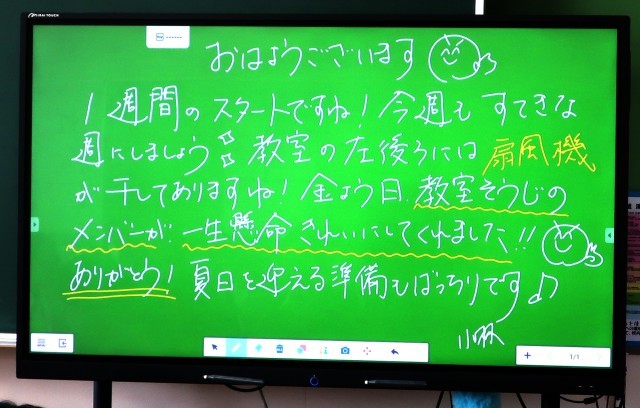 おはようございます
1週間のスタートですね！今週も すてきな
週にしましょう 教室の左後ろには 扇風機
が干してありますね！金よう日、教室そうじの
メンバーが、一生懸命 きれいにしてくれました!!
ありがとう！ 夏日を迎える準備もばっちりです♪
1/1